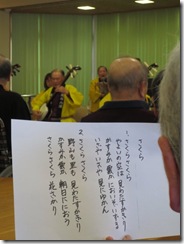 1、さくら さくら
やよいの空は 見わたすかぎり
かすみか雲か においぞいずる
いざや いざや 見にゆかん
2、さくら さくら
野山も里も 見わたすかぎり
かすみか雲か 朝日ににおう
さくら さくら 花ざかり